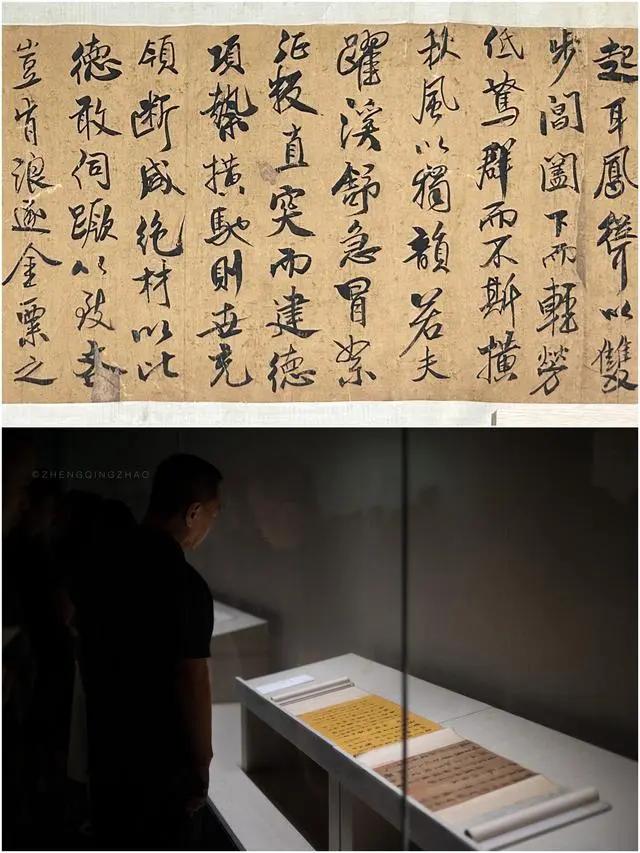 起耳鳳聳以雙
步閶闔下而輕勞
低駑群而不斯橫
秋風以獨韻若夫
躍溪舒急冒絮
征叛直突而建德
項縶橫馳則世充
領断咸絕材以比
德敢伺蹶以致
豈肯浪逐金粟之
©ZHENGQINGZHAO